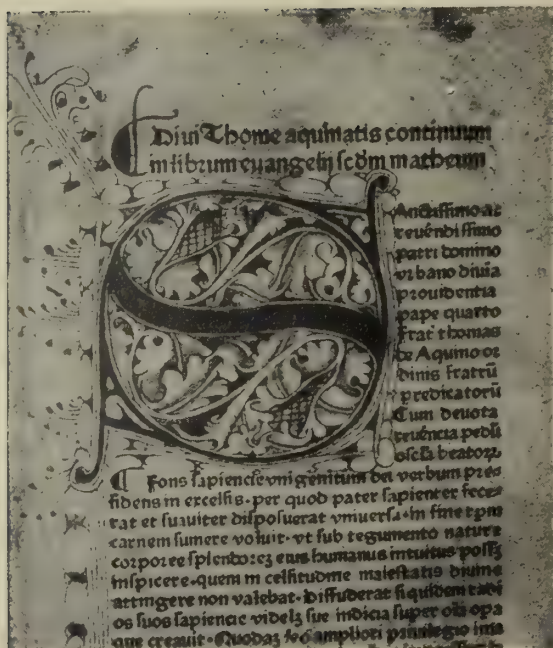 Diui Thome aquinatis continuum
in librum euangelij scd̄m matheum
Anctissimo ac
reuēndissimo
patri domino
vrbano diuia
prouidentia
pape quarto
frat̄ thomas
de Aquino or
dinis fratrū
predicatorū
Cum deuota
reuēncia pedū
oscl̄a beatoꝝ.
Fons sapiencie vnigenitum dei verbum pres
fidens in excelsis. per quod pater sapienter fece
rat et suauiter disposuerat vniuersa. in fine tp̄m
carnem sumere voluit. vt sub tegumento nature
corporee splendorēȝ eius humanus intuitus possȝ
inspicere. quem in celsitudine maiestatis diuine
attingere non valebat. Diffuderat siquidem radi
os suos sapiencie videlȝ sue indicia super oīa opa
que creauit. Quodaȝ ampliori priuilegio ima